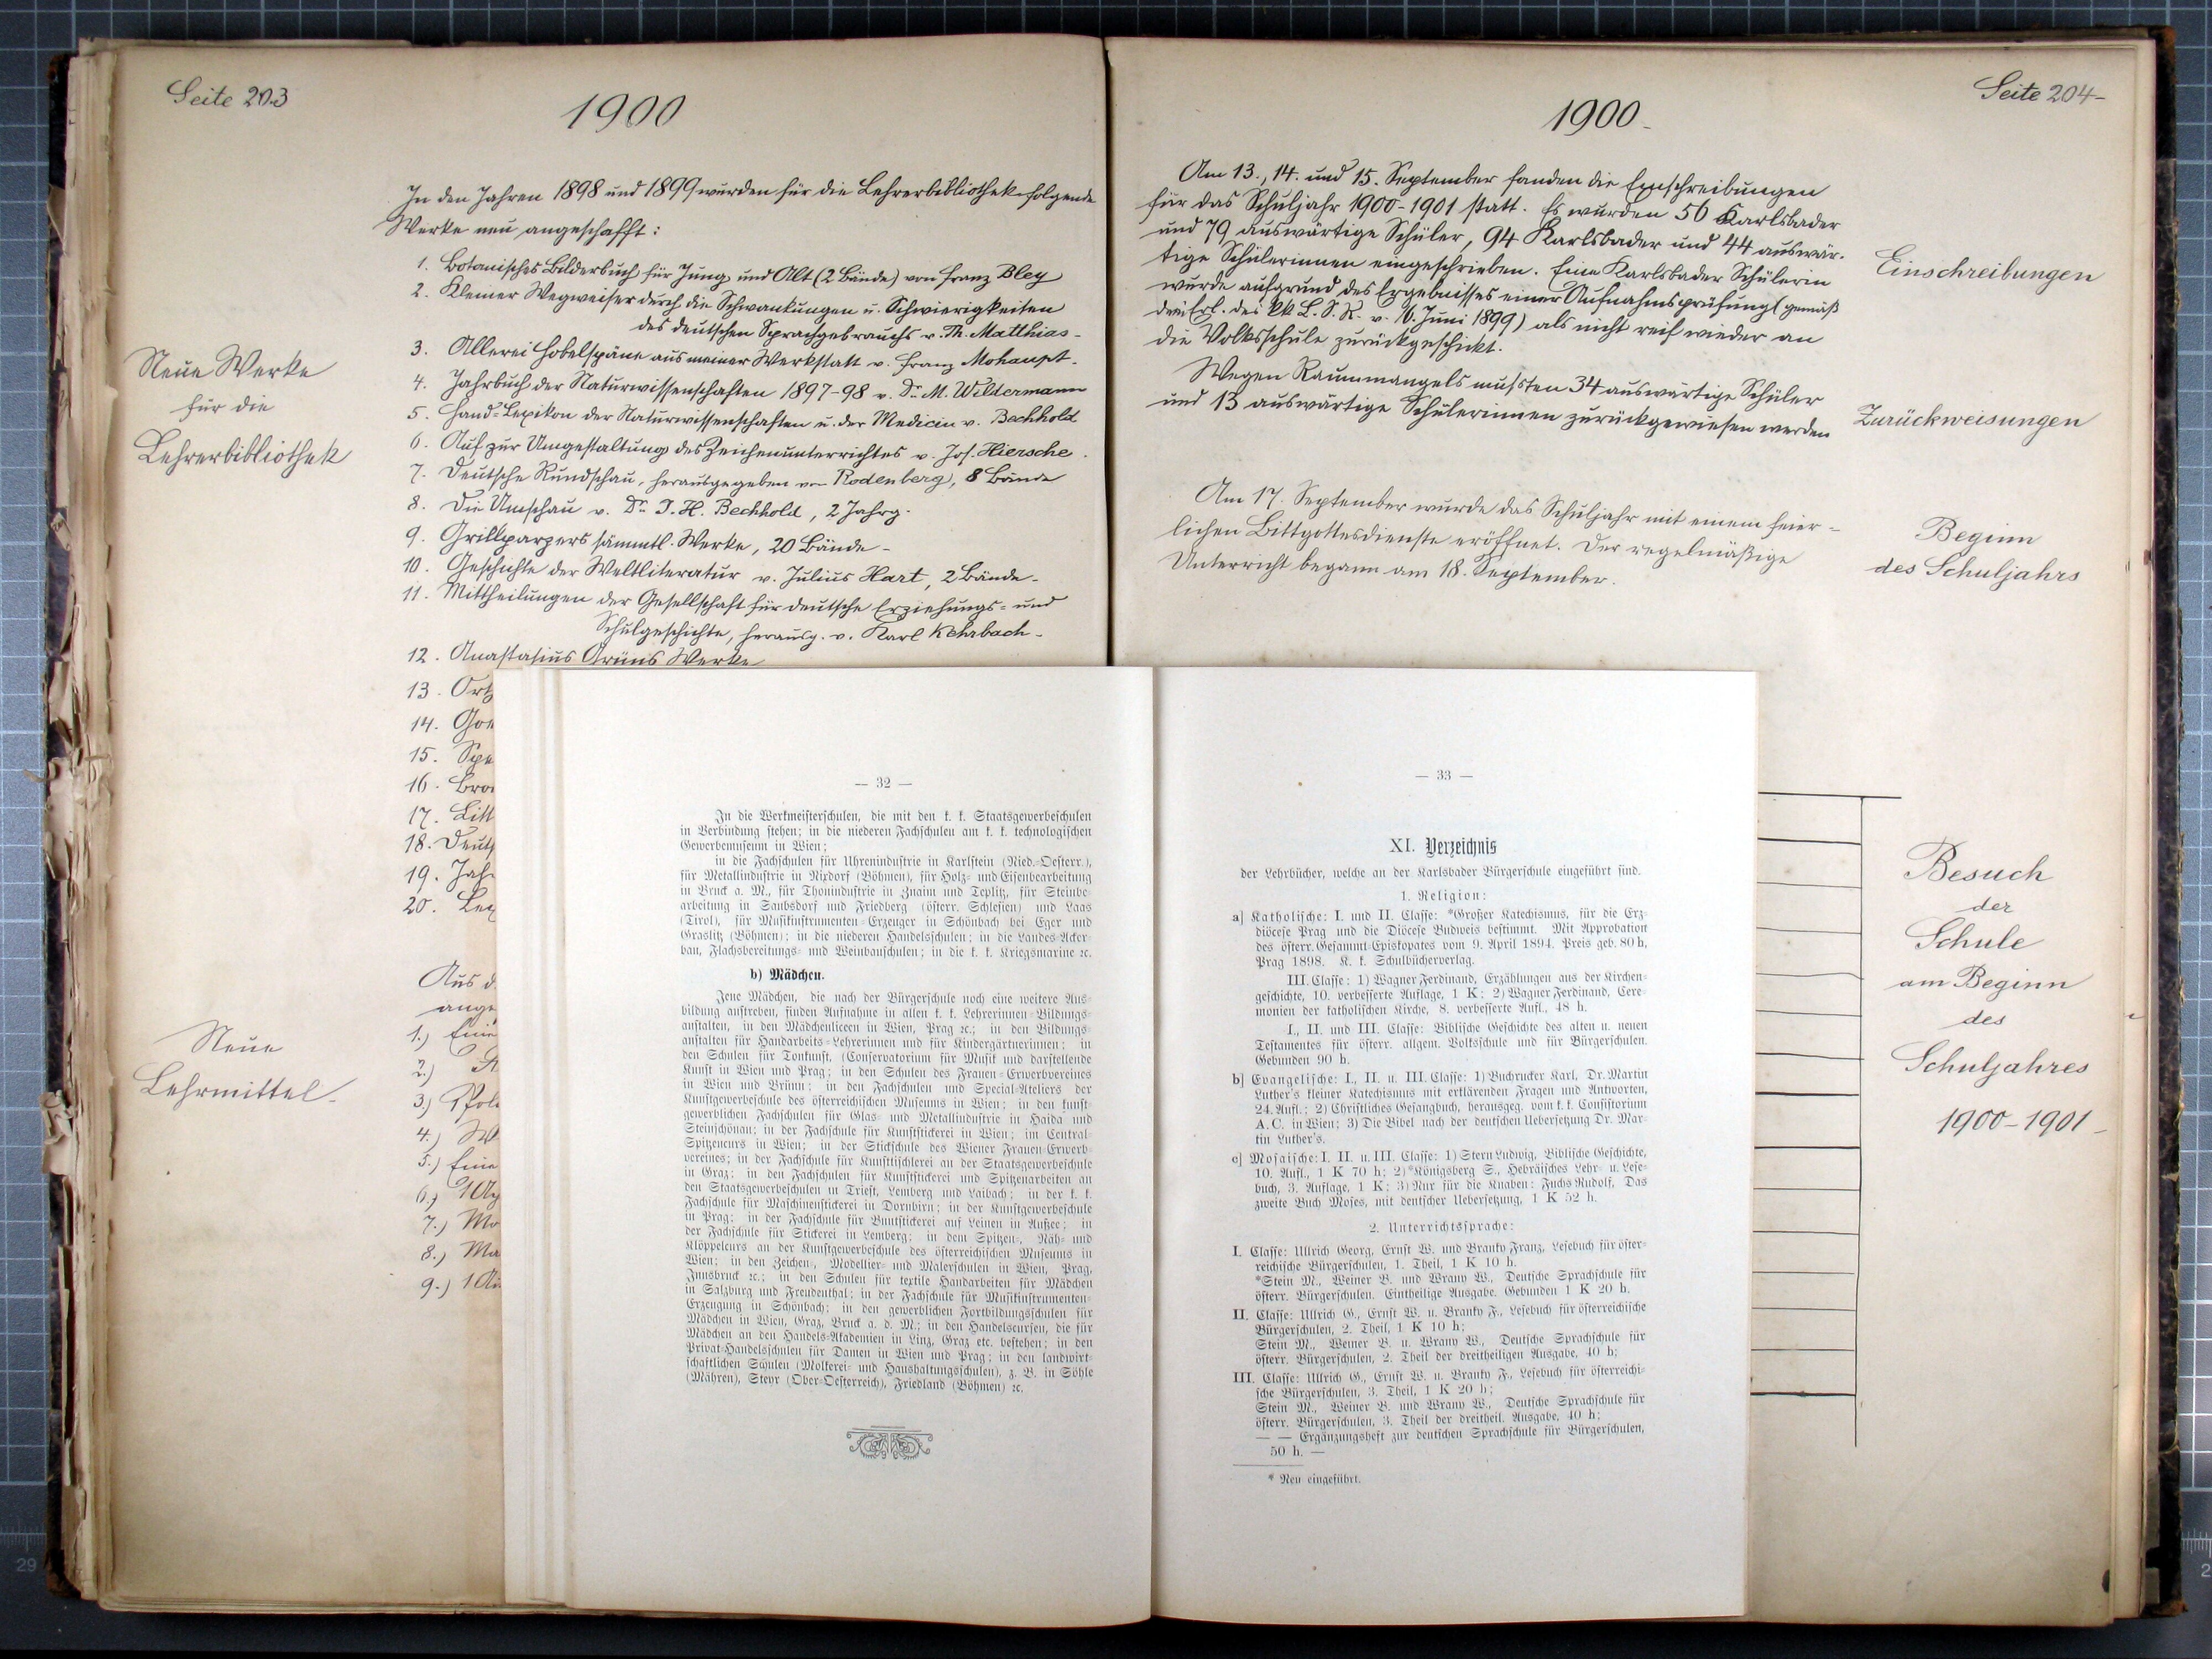 Seite 203
1900
In den Jahren 1898 und 1899 wurden für die Lehrerbibliothek folgende
Werke neu angeschafft:
1. Botanisches Bilderbuch für Jung und Alt (2 Bände) von Franz Bley
2. Kleiner Wegweiser durch die Schwankungen u. Schwierigkeiten
des deutschen Sprachgebrauchs v. Th. Matthias-
3. Allerei Hobelspäne aus meiner Werkstatt v. Franz Mohaupt-
4. Jahrbuch der Naturwissenschaften 1897-98 v. Dr. M. Wildermann
5. Hand-Lexikon der Naturwissenschaften u. der Medicin v. Bechhold
6. Auf zur Umgestaltung des Zeichenunterrichtes v. Jos. Hiersche.
7. Deutsche Rundschau, herausgegeben von Rodenberg, 8 Bände
8. Die Umschau v. Dr. J. H. Bechhold, 2 Jahrg.
9. Grillparzers sämmtl. Werke, 20 Bände-
10. Geschichte der Weltliteratur v. Julius Hart, 2 Bände-
11. Mittheilungen der Gesellschaft für deutsche Erziehungs- und
Schulgeschichte, herausg. v. Karl Kehrbach-
12. Anastasius Grüns Werke
13. Ort
14. Goe
15. Spe
16. Bro
17. Litt
18. Deuts
19. Jah
20. Lex
Neue Werke
für die
Lehrerbibliothek
Aus d.
ange
1.) Eine
2.) A
3.) Pol
4.) W
5.) Eine
6.) 1 Ap
7.) Mo
8.) Ma
9.) 1 Au
Neue
Lehrmittel-
Seite 204-
1900-
Am 13., 14. und 15. September fanden die Einschreibungen
für das Schuljahr 1900-1901 statt. Es wurden 56 Karlsbader
und 79 auswärtige Schüler, 94 Karlsbader und 44 auswär-
tige Schülerinnen eingeschrieben. Eine Karlsbader Schülerin
wurde aufgrund des Ergebnisses einer Aufnahmsprüfung (gemäß
dem Erl. des k.k. L. S. R. v. 16. Juni 1899) als nicht reif wieder an
die Volksschule zurückgeschickt.
Wegen Raummangels mußten 34 auswärtige Schüler
und 13 auswärtige Schülerinnen zurückgewiesen werden
Am 17. September wurde das Schuljahr mit einem feier-
lichen Bittgottesdienste eröffnet. Der regelmäßige
Unterricht begann am 18. September.
Einschreibungen
Zurückweisungen
Beginn
des Schuljahrs
Besuch
der
Schule
am Beginn
des
Schuljahres
1900-1901-
— 32 —
In die Werkmeisterschulen, die mit den k. k. Staatsgewerbeschulen
in Verbindung stehen; in die niederen Fachschulen am k. k. technologischen
Gewerbemuseum in Wien;
in die Fachschulen für Uhrenindustrie in Karlstein (Nied.-Oesterr.),
für Metallindustrie in Nixdorf (Böhmen), für Holz- und Eisenbearbeitung
in Bruck a. M., für Thonindustrie in Znaim und Teplitz, für Steinbe-
arbeitung in Saubsdorf und Friedberg (österr. Schlesien) und Laas
(Tirol), für Musikinstrumenten-Erzeuger in Schönbach bei Eger und
Graslitz (Böhmen); in die niederen Handelsschulen; in die Landes-Acker-
bau, Flachsbereitungs- und Weinbauschulen; in die k. k. Kriegsmarine ꝛc.
b) Mädchen.
Jene Mädchen, die nach der Bürgerschule noch eine weitere Aus-
bildung anstreben, finden Aufnahme in allen k. k. Lehrerinnen-Bildungs-
anstalten, in den Mädchenliceen in Wien, Prag ꝛc.; in den Bildungs-
anstalten für Handarbeits-Lehrerinnen und für Kindergärtnerinnen; in
den Schulen für Tonkunst, (Conservatorium für Musik und darstellende
Kunst in Wien und Prag; in den Schulen des Frauen-Erwerbvereines
in Wien und Brünn; in den Fachschulen und Special-Ateliers der
Kunstgewerbeschule des österreichischen Museums in Wien; in den kunst-
gewerblichen Fachschulen für Glas- und Metallindustrie in Haida und
Steinschönau; in der Fachschule für Kunststickerei in Wien; im Central-
Spitzencurs in Wien; in der Stickschule des Wiener Frauen-Erwerb-
vereines; in der Fachschule für Kunsttischlerei an der Staatsgewerbeschule
in Graz; in den Fachschulen für Kunststickerei und Spitzenarbeiten an
den Staatsgewerbeschulen in Triest, Lemberg und Laibach; in der k. k.
Fachschule für Maschinenstickerei in Dornbirn; in der Kunstgewerbeschule
in Prag; in der Fachschule für Buntstickerei auf Leinen in Außee; in
der Fachschule für Stickerei in Lemberg; in dem Spitzen-, Näh- und
Klöppelcurs an der Kunstgewerbeschule des österreichischen Museums in
Wien; in den Zeichen-, Modellier- und Malerschulen in Wien, Prag,
Innsbruck ꝛc.; in den Schulen für textile Handarbeiten für Mädchen
in Salzburg und Freudenthal; in der Fachschule für Musikinstrumenten-
Erzeugung in Schönbach; in den gewerblichen Fortbildungsschulen für
Mädchen in Wien, Graz, Bruck a. d. M.; in den Handelscursen, die für
Mädchen an den Handels-Akademien in Linz, Graz etc. bestehen; in den
Privat-Handelsschulen für Damen in Wien und Prag; in den landwirt-
schaftlichen Schulen (Molkerei- und Haushaltungsschulen), z. B. in Söhle
(Mähren), Steyr (Ober-Oesterreich), Friedland (Böhmen) ꝛc.
— 33 —
XI. Verzeichnis
der Lehrbücher, welche an der Karlsbader Bürgerschule eingeführt sind.
1. Religion:
a] Katholische: I. und II. Classe: *Großer Katechismus, für die Erz-
diöcese Prag und die Diöcese Budweis bestimmt. Mit Approbation
des österr. Gesammt-Episkopates vom 9. April 1894. Preis geb. 80 h,
Prag 1898. K. k. Schulbücherverlag.
III. Classe: 1) Wagner Ferdinand, Erzählungen aus der Kirchen-
geschichte, 10. verbesserte Auflage, 1 K; 2) Wagner Ferdinand, Cere-
monien der katholischen Kirche, 8. verbesserte Aufl., 48 h.
I., II. und III. Classe: Biblische Geschichte des alten u. neuen
Testamentes für österr. allgem. Volksschule und für Bürgerschulen.
Gebunden 90 h.
b] Evangelische: I., II. u. III. Classe: 1) Buchrucker Karl, Dr. Martin
Luther's kleiner Katechismus mit erklärenden Fragen und Antworten,
24. Aufl.; 2) Christliches Gesangbuch, herausgeg. vom k. k. Consistorium
A. C. in Wien; 3) Die Bibel nach der deutschen Uebersetzung Dr. Mar-
tin Luther's.
c] Mosaische: I. II. u. III. Classe: 1) Stern Ludwig, Biblische Geschichte,
10. Aufl., 1 K 70 h; 2) *Königsberg S., Hebräisches Lehr- u. Lese-
buch, 3. Auflage, 1 K; 3) Nur für die Knaben: Fuchs Rudolf, Das
zweite Buch Moses, mit deutscher Uebersetzung, 1 K 52 h.
2. Unterrichtssprache:
I. Classe: Ullrich Georg, Ernst W. und Branky Franz, Lesebuch für öster-
reichische Bürgerschulen, 1. Theil, 1 K 10 h.
*Stein M., Weiner B. und Wrany W., Deutsche Sprachschule für
österr. Bürgerschulen. Eintheilige Ausgabe. Gebunden 1 K 20 h.
II. Classe: Ullrich G., Ernst W. u. Branky F., Lesebuch für österreichische
Bürgerschulen, 2. Theil, 1 K 10 h;
Stein M., Weiner B. u. Wrany W., Deutsche Sprachschule für
österr. Bürgerschulen, 2. Theil der dreitheiligen Ausgabe, 40 h;
III. Classe: Ullrich G., Ernst W. u. Branky F., Lesebuch für österreichi-
sche Bürgerschulen, 3. Theil, 1 K 20 h;
Stein M., Weiner B. und Wrany W., Deutsche Sprachschule für
österr. Bürgerschulen, 3. Theil der dreitheil. Ausgabe, 40 h;
— — Ergänzungsheft zur deutschen Sprachschule für Bürgerschulen,
50 h. —
* Neu eingeführt.
29
2